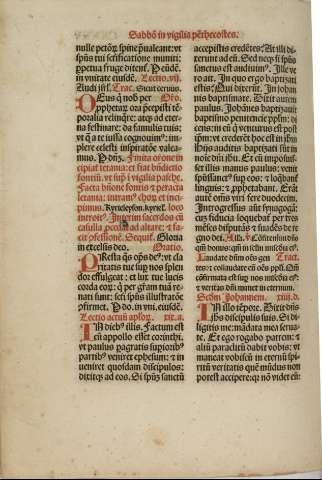 Sabbō in vigilia pēthecostes.
nulle petor̄ spine pualeant: vt
spūs tui scificatione muniti:
ppetua fruge ditent̄. P eūdē.
in vnitate eiusdē. Lectio. vij.
Audi isrl̄. Trac. Sicut ceruus.
Deus q̄ nob̄ per Oro.
pphetar̄ ora p̄cepisti tē
poralia relinq̄re: atq̄ ad eter-
na festinare: da famulis tuis:
vt que a te iussa cognouim⁹: im-
plere celesti inspiratōe valea-
mus. P dnm̄. Finita orōne in
cipiat letania: et fiat būdictio
fontis. vt sup̄ i vigilia pasche.
Facta būone fontis et peracta
letania: intrant̄ chor̄. et inci-
pimus. Kyrieleyson. kyriel̄. loco
introit⁹. Interim sacerdos cū
casulla pcedat ad altare: et fa-
cit pfessionē. Sequit̄. Gloria
in excelsis deo. Oratio.
Presta qs ops de⁹: vt cla
ritatis tue sup nos splen
dor effulgeat: et lux tue lucis
corda eor̄: qui per gratiā tuā re-
nati sunt: scti spūs illustratōe
pfirmet. P dn̄. in vni. eiusdē.
Lectio actuū aplor̄. xix. a.
In dieb⁹ illis. Factum est
cū appollo esset corinthi:
vt paulus pagratis supiorib⁹
partib⁹ veniret ephesum: et in
ueniret quosdam discipulos:
dixitq̄ ad eos. Si spm̄ sanctū
accepistis credētes: At illi di-
xerunt ad eū. Sed neq̄ si spūs
sanctus est audiuim⁹. Ille ve
ro ait. In quo ergo baptizati
estis: Qui dixerūt. In Johan
nis baptismate. Dixit autem
paulus. Johānes baptizauit
baptismo penitencie pplm̄: di
cens: in eū q̄ venturus est post
ipm̄: vt crederēt hoc est in ihm̄
His auditis baptizati sūt in
noīe dn̄i ihū. Et cū imposuis-
set illis manus paulus: venit
spūssanct⁹ sup eos: et loq̄bant̄
linguis: et pphetabant. Erāt
aūt om̄s viri fere duodecim.
Introgressus aūt synagogā:
cuz fiducia loquebat̄ per tres
mēses: disputās et suadēs de re
gno dei.
Laudate dnm̄ oēs gen Tract.
tes: et collaudate eū om̄s ppli.
et veritas dn̄i manet in eternum.
Scdm̄ Johannem. xiiij. d.
In illo tēpore. Dixit
ihs discipulis suis. Si di
ligitis me: mādata mea serua
te. Et ego rogabo patrem: et
aliū paraclitū dabit vobis: vt
maneat vobiscū in eternū spi-
ritū veritatis quē mūdus non
potest accipere: q̄ nō videt eū: